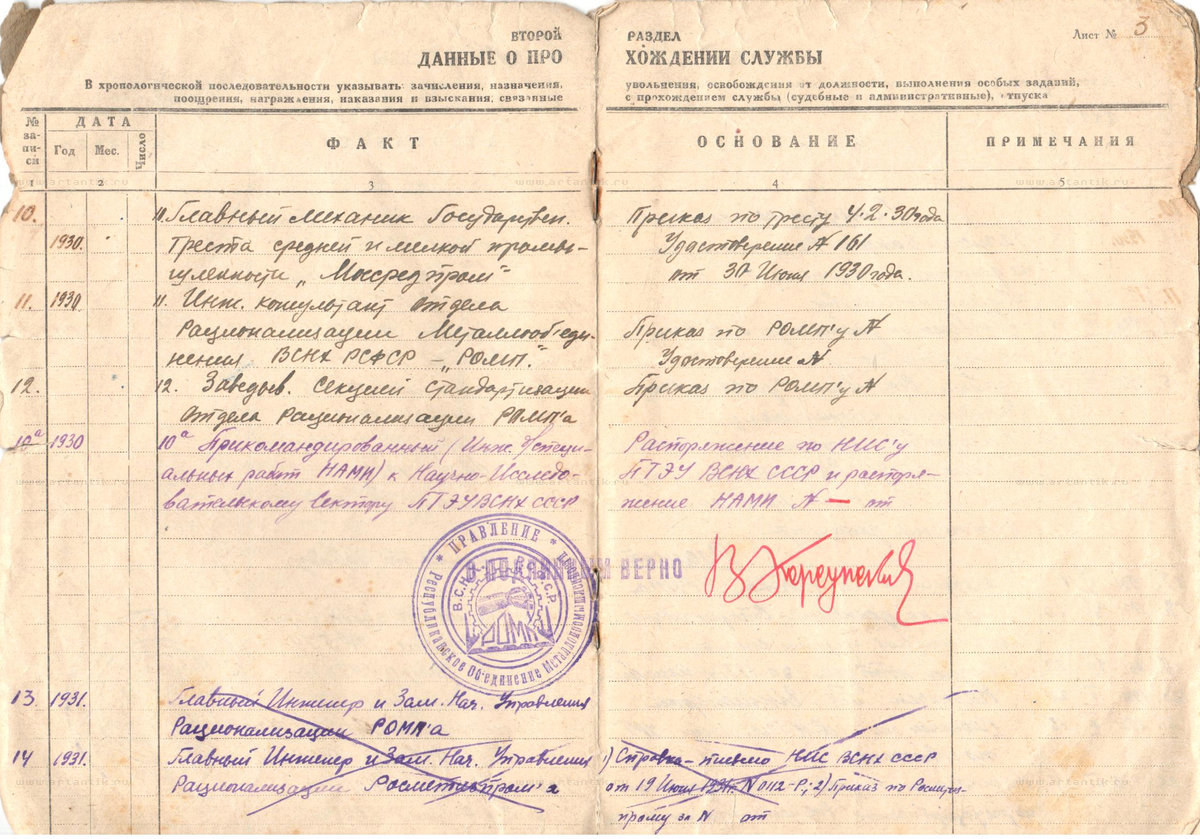 ВТОРОЙ РАЗДЕЛ
Лист № 3
ДАННЫЕ О ПРОХОЖДЕНИИ СЛУЖБЫ
В хронологической последовательности указывать: зачисления, назначения, увольнения, освобождения от должности, выполнения особых заданий,
поощрения, награждения, наказания и взыскания, связанные с прохождением службы (судебные и административные), отпуска
№ за-пи-си
ДАТА
Год Мес. Число
ФАКТ
ОСНОВАНИЕ
ПРИМЕЧАНИЯ
1 2 3 4 5
www.artantik.ru www.artantik.ru www.artantik.ru
10. 11. Главный механик Государствен. Приказ по тресту 4.2.30 года
1930. Треста средней и мелкой промы- Удостоверение № 161
шленности „Мосредпром" от 30 Июня 1930 года.
11. 1930 11. Инж. консультант отдела
Рационализации Металлооб'еди- Приказ по РОМП'у №
нения ВСНХ РСФСР – „РОМП." Удостоверение №
12. 12. Заведыв. секцией стандартизации Приказ по РОМП'у №
отдела Рационализации РОМП'а
10а 1930 10а Прикомандированный (Инж. специ- Распоряжение по НИС'у
альных работ НАМИ) к Научно-Исследо- ПТЭУ ВСНХ СССР и распоря-
вательскому Сектору ПТЭУ ВСНХ СССР жение НАМИ № — от
ПРАВЛЕНИЕ
Республиканское Об'единение Металлопромышленности
В.С.Н.Х. Р.С.Ф.С.Р.
РОМП
С ПОДЛИННЫМ ВЕРНО
13 1931. Главный Инженер и Зам. Нач. Управления
Рационализации РОМП'а
14 1931. Главный Инженер и Зам. Нач. Управления 1) Справка-письмо НИС ВСНХ СССР
Рационализации Росметизпром'а от 19 Июня 1931г. N 0112-Р; 2) Приказ по
прому за N от